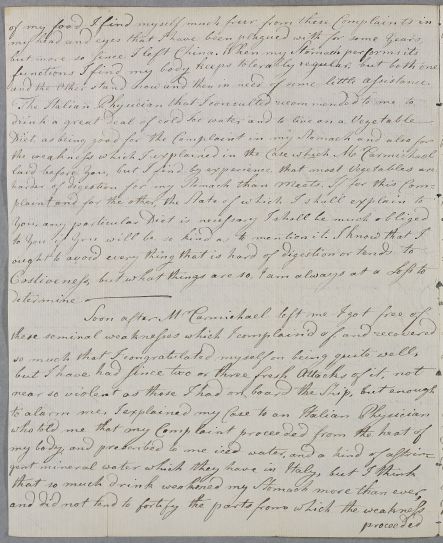 of my food, I find myself much freer from these Complaints in
my head and eyes that I have been plagued with for some Years
but more so since I left China. When my Stomach performs its
functions I find my body keeps tolerably regular, but both one
and the other stand now and then in need of some little assistance.
The Italian Physician that I consulted recommended to me to
drink a great deal of cool Ice water and to live on a Vegetable
Diet as being good for the Complaint in my Stomach and also for
the weakness which I explained in the Case which Mr Carmichael
laid before You, but I find by experience that most Vegetables are
harder of digestion for my Stomach than Meats. If for this Com-
plaint and for the other, the State of which I shall explain to
You, any particular Diet is necessary I shall be much obliged
to You if You will be so kind as to mention it. I know that I
ought to avoid every thing that is hard of digestion or tends to
Costiveness, but what things are so, I am always at a Loss to
determine.
Soon after Mr Carmichael left me I got free of
these seminal weaknesses which I complained of and recovered
so much that I congratulated myself on being quite well,
but I have had since two or three fresh Attacks of it, not
near so violent as those I had on board the Ship, but enough
to alarm me. I explained my Case to an Italian Physician
who told me that my Complaint proceeded from the heat of
my body, and prescribed to me iced water, and a kind of astrin-
gent mineral water which they have in Italy but I think
that so much drink weakened my Stomach more than ever
and did not tend to fortify the parts from which the weakness
proceeded